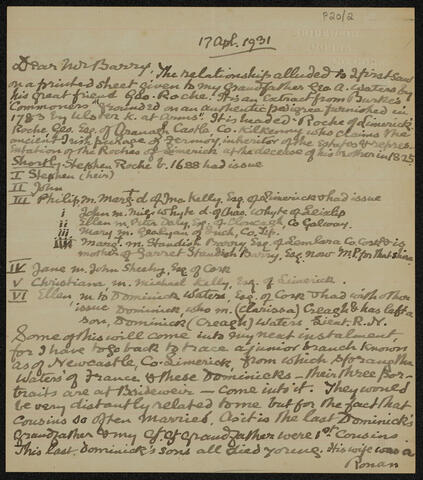 P20/2
17 Apl. 1931
Dear Mr Barry, The relationship alluded to I first saw
on a printed sheet given to my Grandfather Geo A. Waters by
his great friend Geo. Roche. It is an Extract from Burke's
"Commoners", "grounded on an authentic pedigree furnished in
1783 by Ulster K. at Arms". It is headed: Roche of Limerick,
Roche Geo. Esq. of Granagh Castle Co. Kilkenny who claims the
ancient Irish peerage of Fermoy, inheritor of the Estates & repres-
entation of the Roches of Limerick at the decease of his brother in 1825
Shortly Stephen Roche b. 1688 had issue
I Stephen (heir)
II John
III Philip m. Margt d. of Jno. Kelly, Esq. of Limerick & had issue
i John m. whyte d. of Chas. Whyte of Leixlip
ii Ellen m Peter Daly, Esq. of Cloncagh, Co Galway.
iii Mary m. Gealyan of Co. Tip.
iiii Margt. m. Standish Barry Esq of Lemlara Co. Cork & is
mother of Garret Standish Barry, Esq. now MP for that shire
IV Jane m. John Sheehy, Esq of Cork
V Christiana, m. Michael Kelly, Esq. of Limerick.
VI Ellen m to Dominick Waters, Esq. of Cork & had with other
issue Dominick, who m. (Clarissa) Creagh & has left a
son, Dominick (Creagh) Waters, Lieut. R.N.
Some of this will come into my next instalment
for I have to go back to trace a junior branch known
as of Newcastle, Co. Limerick, from which sprang the
Waters of France & these Dominicks — their three por-
traits are at Brideweir — come into it. They would
be very distantly related to me but for the fact that
Cousins so often married. As it is the last Dominick's
Grandfather & my Gt Gt Grandfather were 1st Cousins.
This last Dominick's sons all died young. His wife was a
Ronan